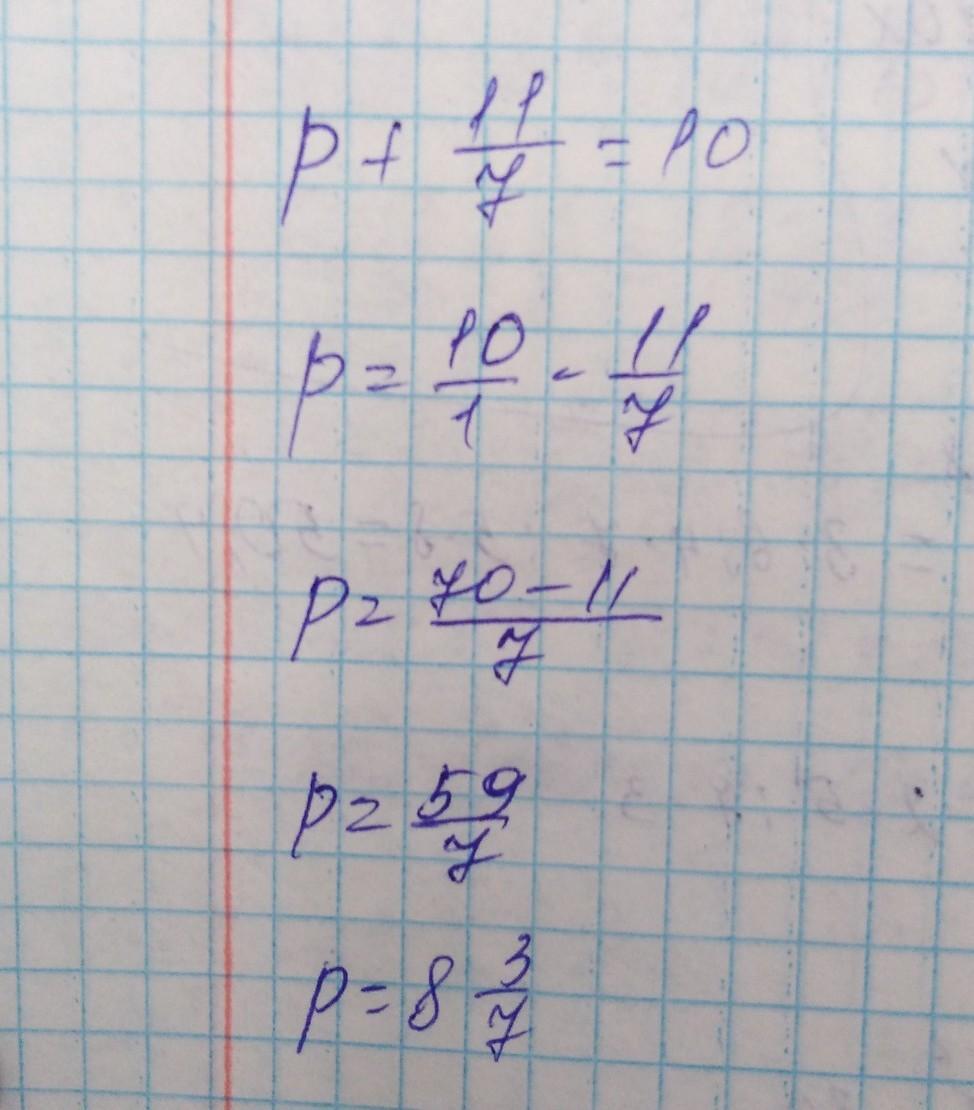 p + 11/7 = 10
p = 10/1 - 11/7
p = 70 - 11/7
p = 59/7
p = 8 3/7